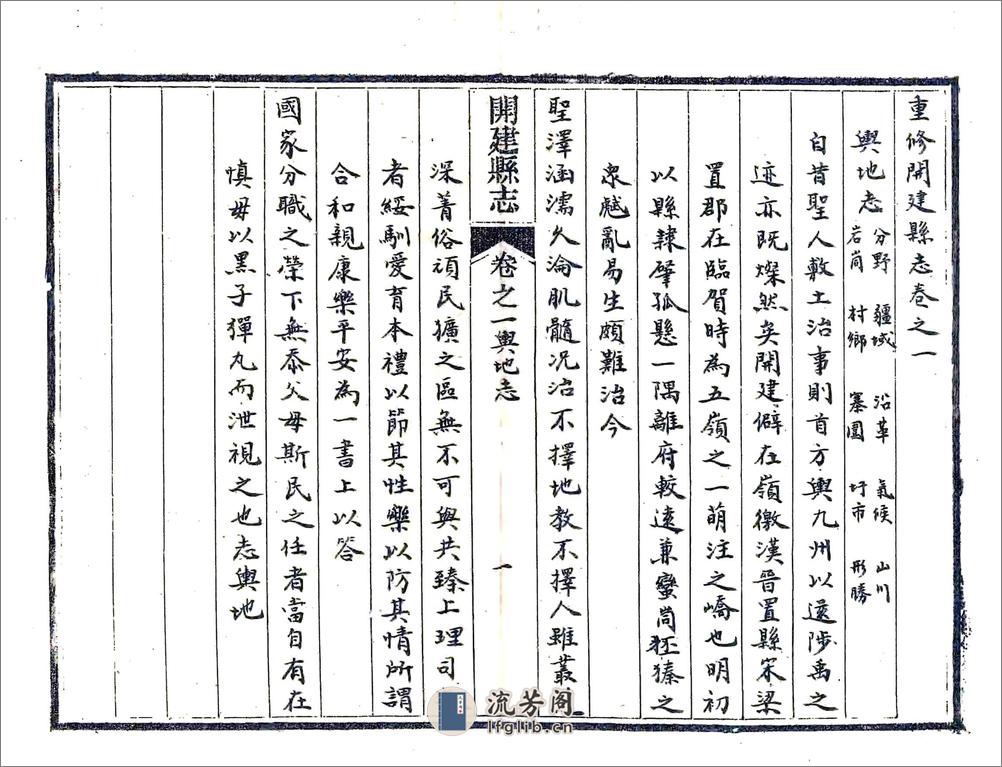 重修開建縣志卷之一
輿地志 分野 疆域 沿革 氣候 山川
岩峝 村鄉 寨圍 圩市 形勝
自昔聖人敷土治事則首方輿九州以遂陟禹之
迹亦既燦然矣開建僻在嶺徼漢晉置縣宋梁
置郡在臨賀時為五嶺之一萌注之嶠也明初
以縣隸肇孤懸一隅離府較遠兼蠻峝狉獉之
眾彪亂易生頗難治今
聖澤涵濡久淪肌髓況治不擇地教不擇人雖叢
開建縣志 卷之一輿地志 一
深菁俗頑民獷之區無不可與共臻上理司
者綏馴愛育本禮以節其性樂以防其情所謂
合和親康樂平安為一書上以答
國家分職之榮下無忝父母斯民之任者當自有在
慎毋以黑子彈丸而泄視之也志輿地
流芳阁
lfglib.cn